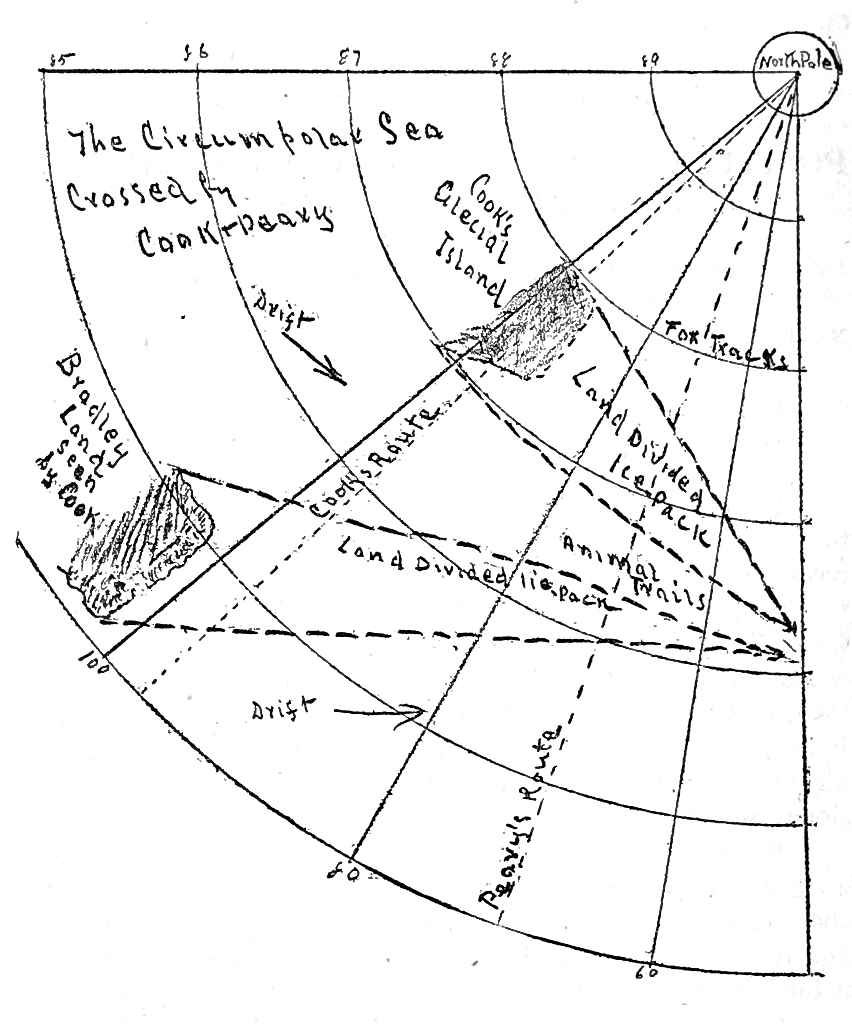 85 86 87 88 89 North Pole
The Circumpolar Sea
Crossed by
Cook + Peary
Cook's
Glecial
Island
Drift
Fox Tracks
Bradley
Land
seen
by Cook
Cook's Route
Land Divided
Ice pack
Animal
Trails
Land Divided Iiepack
100
Drift
Peary's Route
80
60